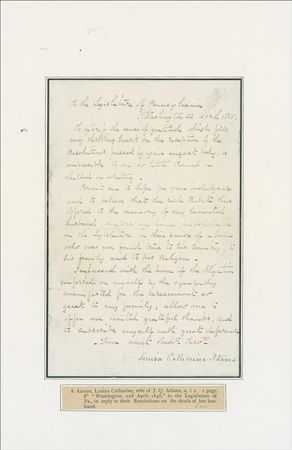 To the Legislature of Pennsylvania
Washington 22 April 1848.
To express the sense of gratitude which fills
my throbbing heart on the reception of the
Resolutions passed by your august body, is
to me so little
skilled in writing.
Permit me to hope for your indulgence
and to believe that the rich tribute thus
offered to the memory of my lamented
husband,
on the Legislature in their praise of a man
who was ever found true to his Country, to
his family and to his Religion.
Impressed with the sense of the obligation
conferred on myself by the sympathy
manifested for the bereavement so
great to my family, allow me to
offer my united grateful thanks, and
to subscribe myself with great deference
Your most obedt Servt.
Louisa Catherine Adams
8 ADAMS, Louisa Catharine, wife of J. Q. Adams, a. l. s. 1 page
8° "Washington, 22d April, 1848," to the Legislature of
Pa., in reply to their Resolutions on the death of her hus-
band.